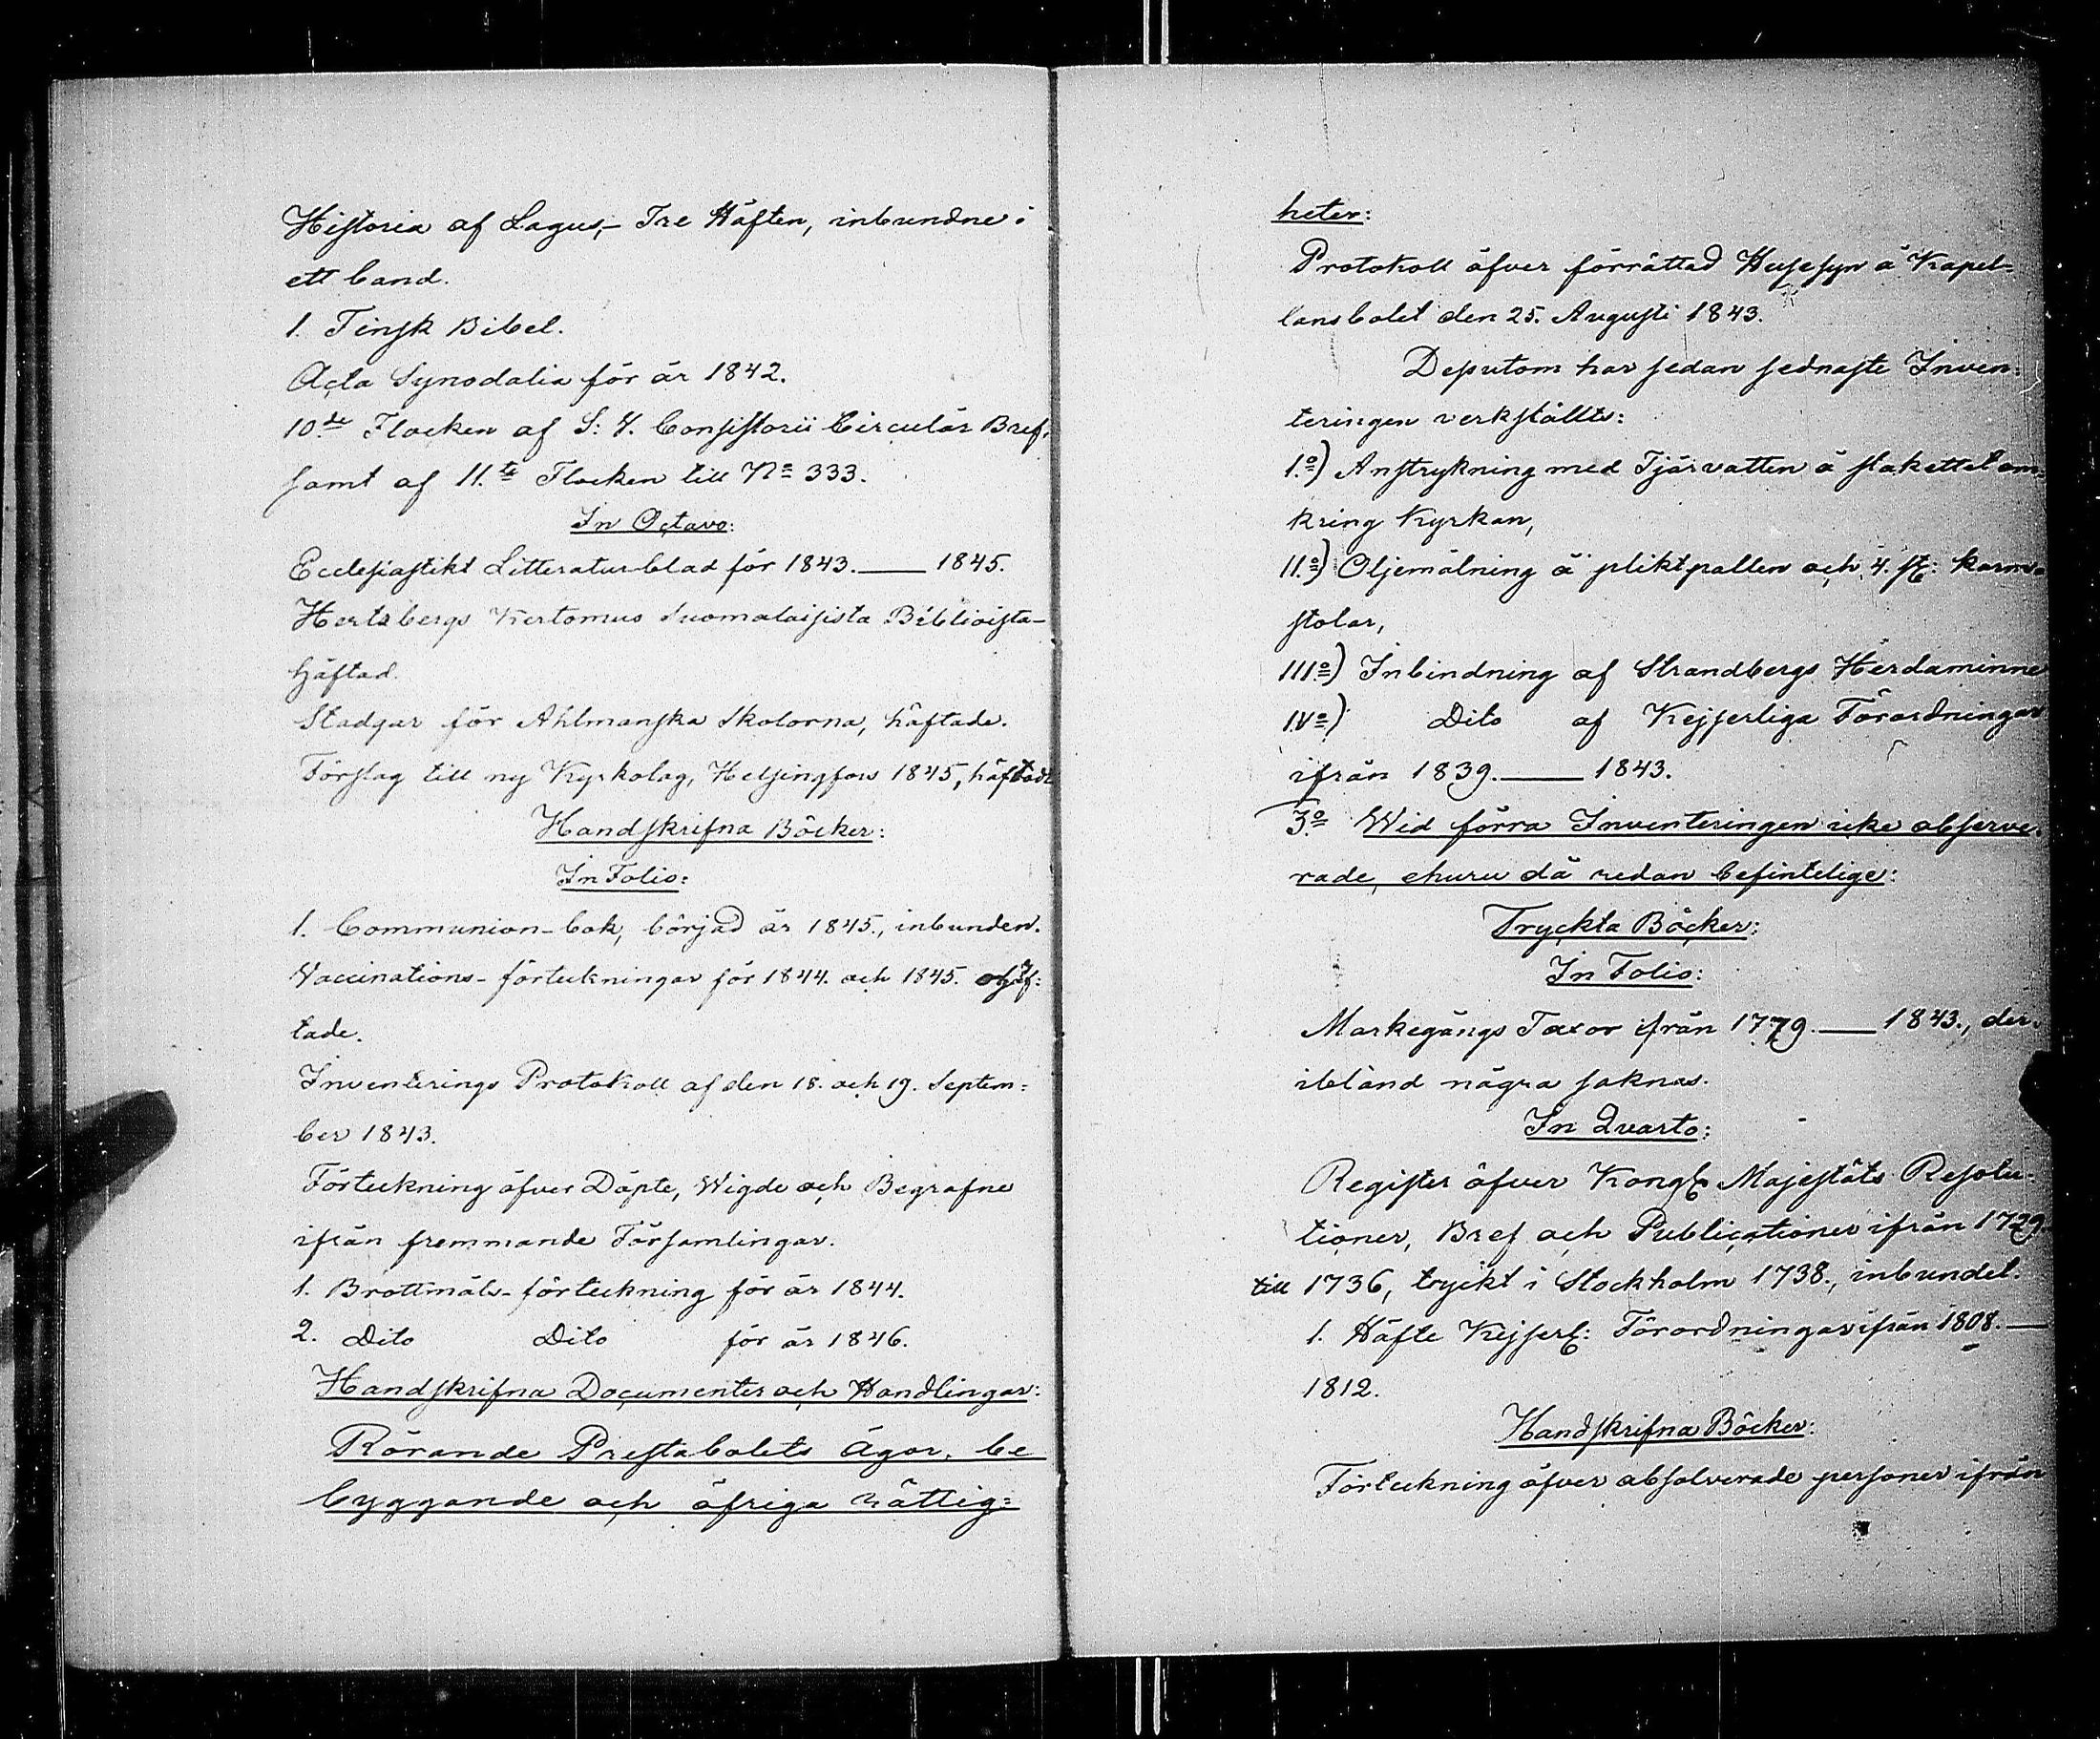 Historia af Lagus,- Tre Häften, inbundne i
ett band.
1. Finsk Bibel.
Acta Synodalia för år 1842.
10.de Flocken af S: Y. Consistorii Circulär Bref,
samt af 11.te Flocken till No 333.
In Octavo:
Ecclesiastikt Litteratur-blad för 1843. — 1845.
Hertzbergs Kertomus Suomalaisista Biblioista-
häftad.
Stadgar för Ahlmanska Skolorna, häftade.
Förslag till ny Kyrkolag, Helsingfors 1845, häftadt
Handskrifna Böcker:
In Folio:
1. Communion-bok, börjad år 1845., inbunden.
Vaccinations-förteckningar för 1844. och 1845. ohäf=
tade.
Inventerings Protokoll af den 18. och 19. Septem=
ber 1843.
Förteckning öfver Döpte, Wigde och Begrafne
ifrån fremmande Församlingar.
1. Brottmåls-förteckning för år 1844.
2. Dito Dito för år 1846.
Handskrifna Documenter och Handlingar:
Rörande Prestabolets Ägor, be
byggande och öfriga rättig=
heter:
Protokoll öfver förrättad Husesyn å Kapel=
lansbolet den 25. Augusti 1843.
Desutom har sedan sednaste Inven=
teringen verkställts:
1.o) Anstrykning med Tjärvatten å stakettet om=
kring Kyrkan,
II.o) Oljemålning å pliktpallen och 4. st: karm=
stolar,
III.o) Inbindning af Strandbergs Herdaminne
IV.o) Dito af Kejserliga Förordningar
ifrån 1839. — 1843.
3.o Wid förra Inventeringen icke observe=
rade, ehuru då redan befintelige:
Tryckta Böcker:
In Folio:
Markegångs Taxor ifrån 1779. — 1843., der=
ibland några saknas.
In Quarto:
Register öfver Kongl. Majestäts Resolu=
tioner, Bref och Publicationer ifrån 1729.
till 1736, tryckt i Stockholm 1738., inbundet.
1. Häfte Kejserl: Förordningar ifrån 1808. —
1812.
Handskrifna Böcker:
Förteckning öfver absolverade personer ifrån